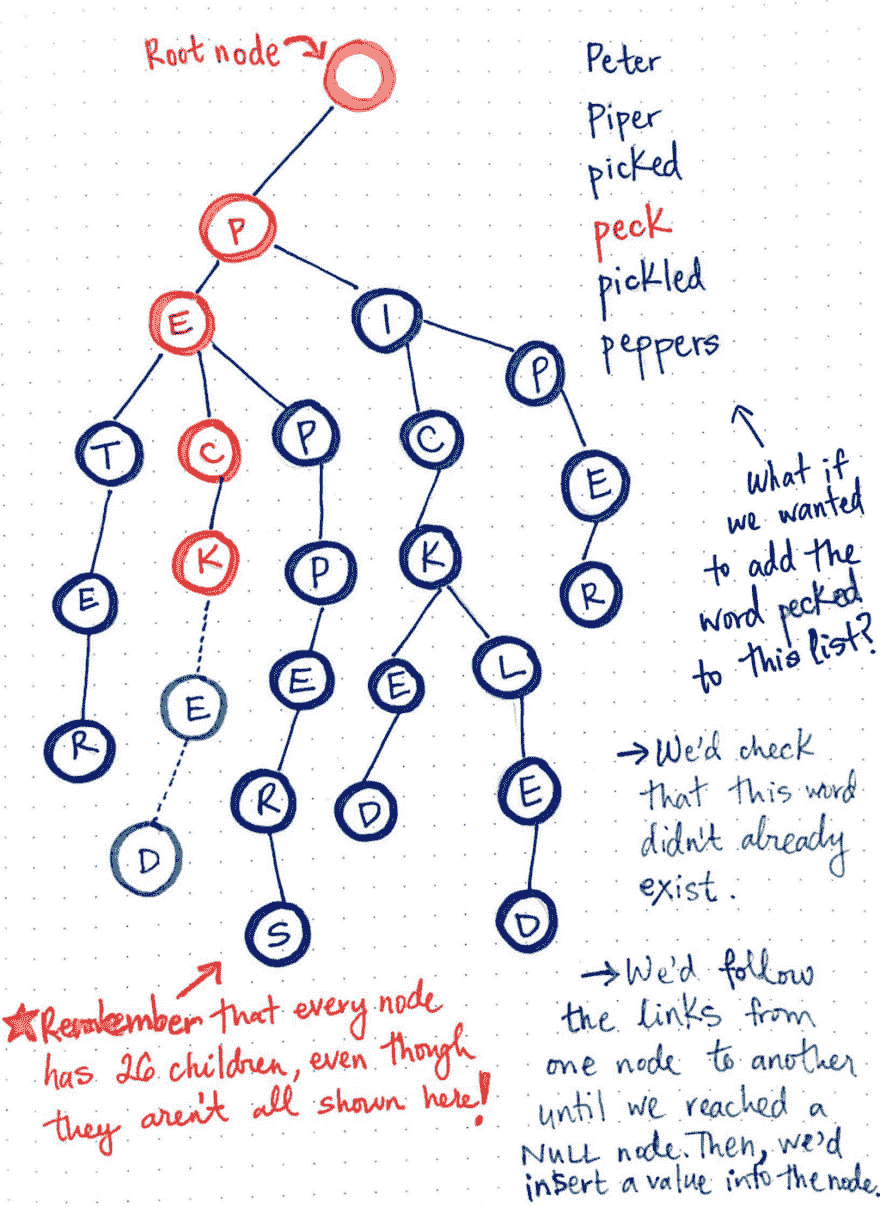 Root node
Peter
Piper
picked
peck
pickled
peppers
P
E
I
P
T
C
P
C
E
E
K
P
K
R
E
E
E
L
R
D
R
D
E
S
D
What if
we wanted
to add the
word pecked
to this list?
→We'd check
that this word
didn't already
exist.
→We'd follow
the links from
one node to another
until we reached a
NULL node. Then, we'd
insert a value into the node.
★Remember that every node
has 26 children, even though
they aren't all shown here!